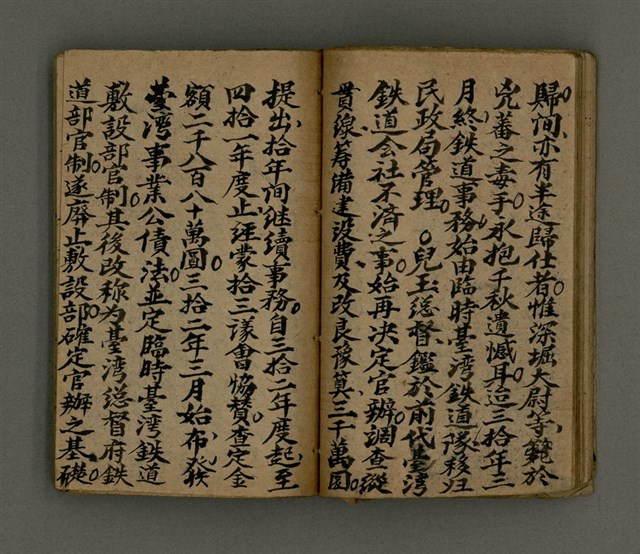 歸間亦有半途歸仕者。惟深堀大尉等斃於
兇蕃之毒手永抱千秋遺憾耳。迨三拾年三
月終鉄道事務始由臨時臺灣鉄道隊移归
民政局管理。○兒玉総督鑑於前代臺湾
鉄道会社不済之事。始再決定官辦。調查縱
貫線籌備建設費及改良豫算三千萬圓。
提出拾年间继續事務。自三拾二年度起至
四拾一年度止經蒙拾三議會协賛。查定金
額二千八百八十萬圓。三拾二年三月始布發
臺湾事業公債法。並定臨時臺湾鉄道
敷設部官制。其後改称为臺湾総督府鉄
道部官制。遂廢止敷設部。確定官辦之基礎。